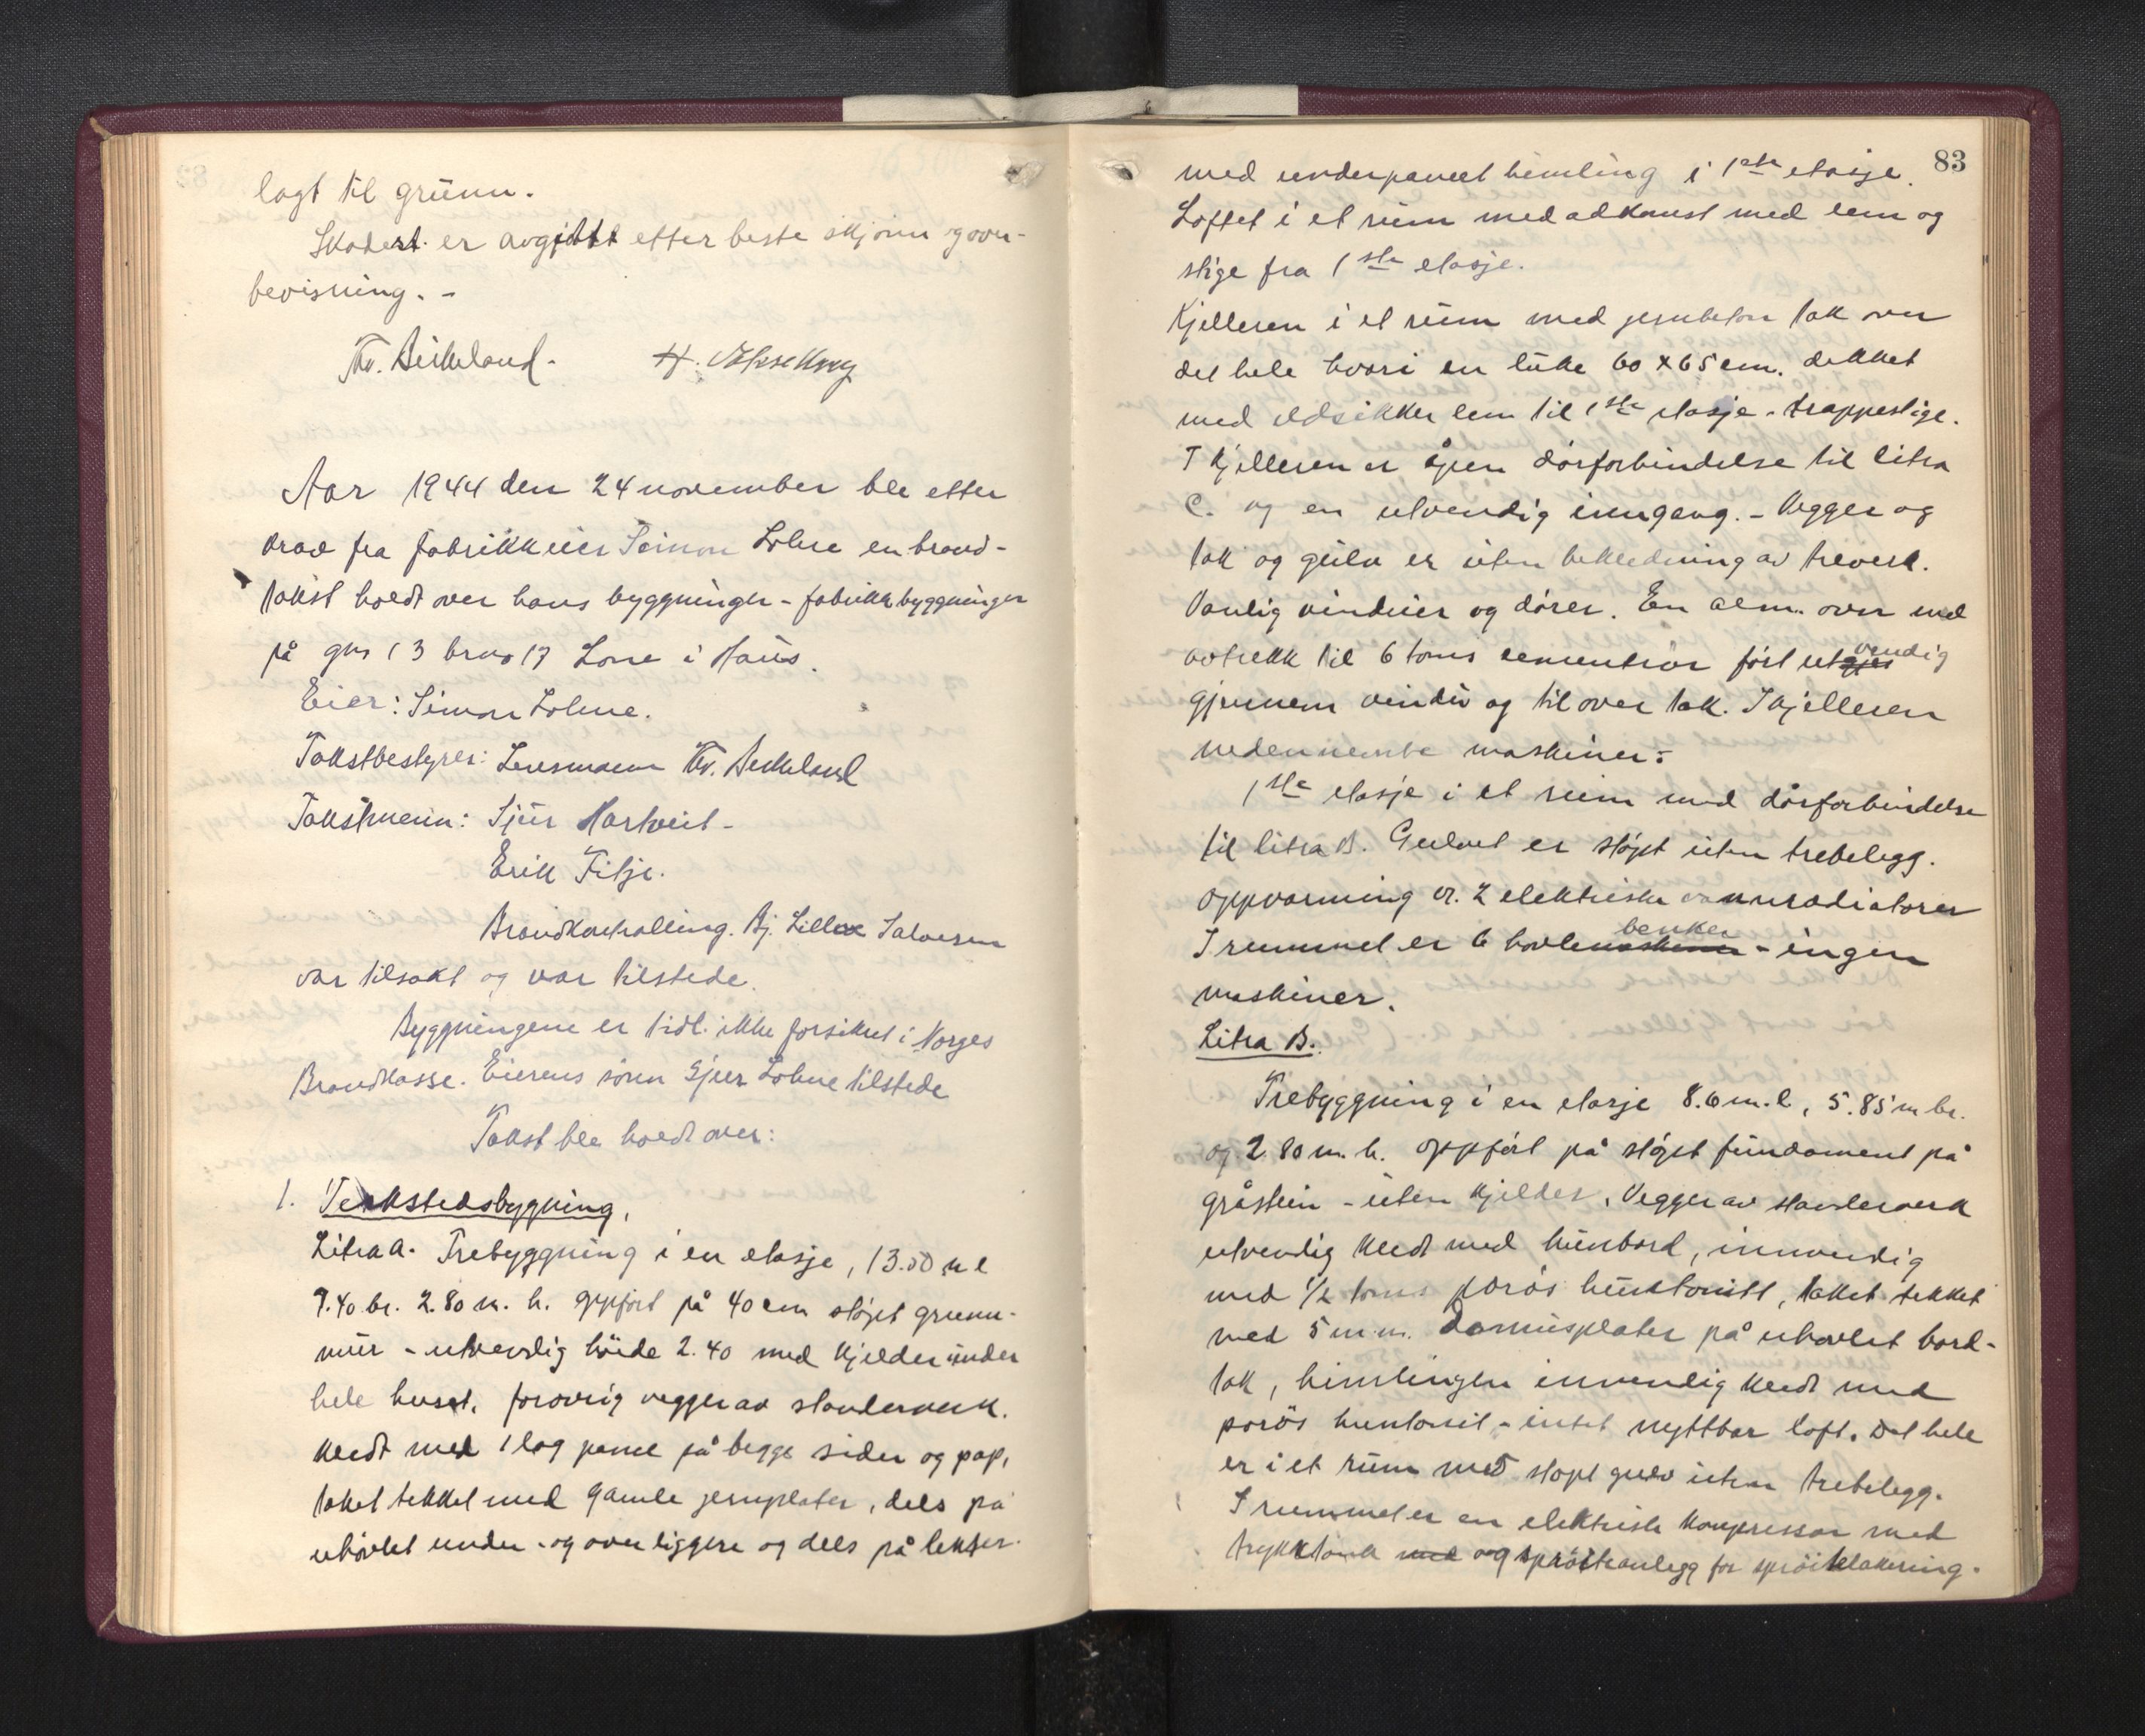 lagt til grunn.
Skadert. er avgitt etter beste skjönn og over-
bevisning. -
Kr. Birkeland. H.
Aar 1944 den 24 november ble etter
krav fra fabrikkeier Simon Lohne en brand-
takst holdt over hans byggninger - fabrikkbyggninger
på gnr 13 brno 17 Lone i Haus.
Eier: Simon Lohne.
Takstbestyrer: Lensmann Kr. Birkeland
Takstmenn: Sjur Hartveit -
Erik Fitje.
Brand Bj. Lillox Salvesen
var tilsakt og var tilstede.
Byggningene er tidl. ikke forsikret i Norges
Brandkasse. Eierens sönn Sjur Lohne tilstede
Takst ble holdt over:
1. Verkstedsbygning.
Litra A. Trebyggning i en etasje, 13.50 m l
9.40 br. 2.80 m. h. oppfört på 40 cm stöpt grunn-
mür - utvendig höide 2.40 med kjelder under
hele huset, forövrig vegger av standerverk.
kledt med 1 lag panel på begge sider og pap,
taket tekket med gamle jernplater, dels på
uhövlet under - og over liggere og dels på lekter.
83
med underpanel himling i 1ste etasje.
Loftet i et rum med adkomst med lem og
stige fra 1ste etasje.
Kjelleren i et rum med jernbeton tak over
det hele hvori en luke 60 x 65 cm. dekket
med ildsikker lem til 1ste etasje - trappestige.
I kjelleren er åpen dörforbindelse til litra
C. og en utvendig inngang. - Vegger og
tak og gulv er uten bekledning av treverk.
Vanlig vinduer og dörer. En alm. ovn med
avtrekk til 6 toms cementrör fört utgjen vendig
gjennem vindu og til over tak. I kjelleren
nedennevnte maskiner:
1ste etasje i et rum med dörforbindelse
til litra B. Gulvet er stöpt uten trebelegg.
Oppvarming er. 2 elektriske vannradiatorer
I rummet er 6 hövlemaskiner benker - ingen
maskiner.
Litra B.
Trebyggning i en etasje 8.6 m. l, 5.85 m br.
og 2.80 m. h. oppfört på stöpt fundament på
gråstein - uten kjelder. Vegger av standerverk
utvendig kledt med hunbord, innvendig
med 1/2 toms porös huntonitt, taket tekket
med 5 m.m. Damusplater på uhövlet bord-
tak, himlingen innvendig kledt med
porös huntonit - intet nyttbar loft. Det hele
er i et rum med stöpt gulv uten trebelegg.
I rummet er en elektrisk kompressor med
trykktank med og spröiteanlegg for spröitelakering.